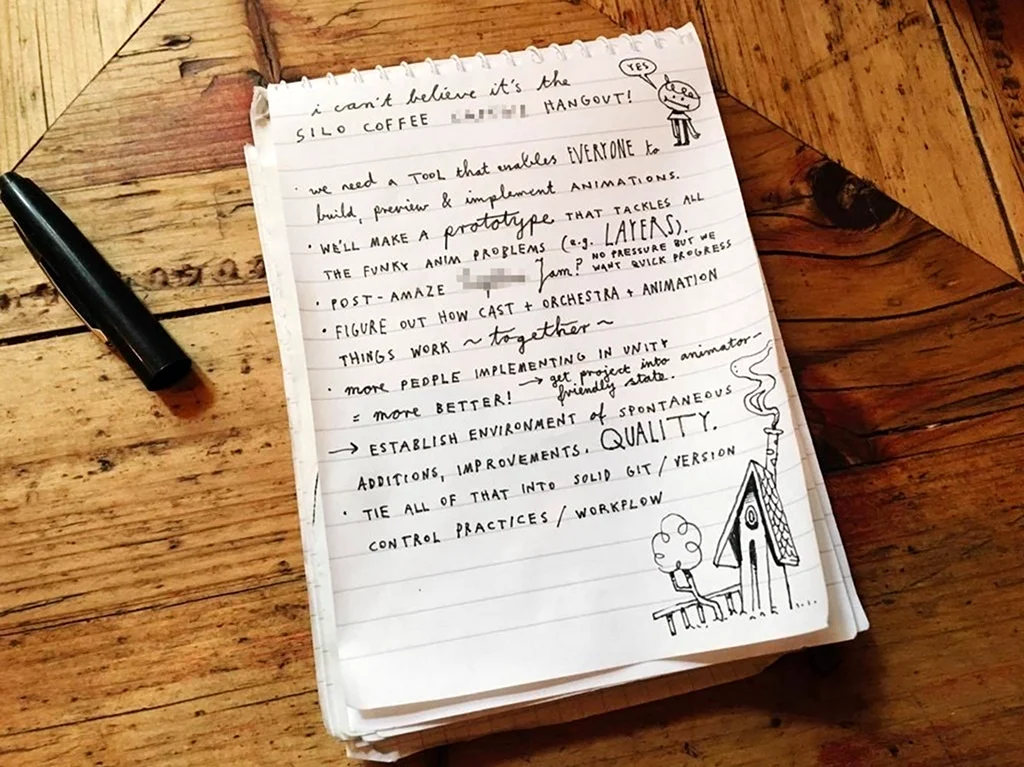 i can't believe it's the
SILO COFFEE HANGOUT!
YES
· we need a TOOL that enables EVERYONE to
build, preview & implement ANIMATIONS.
· WE'LL MAKE A prototype THAT TACKLES ALL
THE FUNKY ANIM PROBLEMS (e.g. LAYERS).
· POST-AMAZE Jam? NO PRESSURE BUT WE
WANT QUICK PROGRESS
· FIGURE OUT HOW CAST + ORCHESTRA + ANIMATION
THINGS WORK ~ together ~
· more PEOPLE IMPLEMENTING IN UNITY
= more BETTER! → get project into animator-
friendly state.
→ ESTABLISH ENVIRONMENT of SPONTANEOUS
ADDITIONS, IMPROVEMENTS. QUALITY.
· TIE ALL OF THAT INTO SOLID GIT / VERSION
CONTROL PRACTICES / WORKFLOW